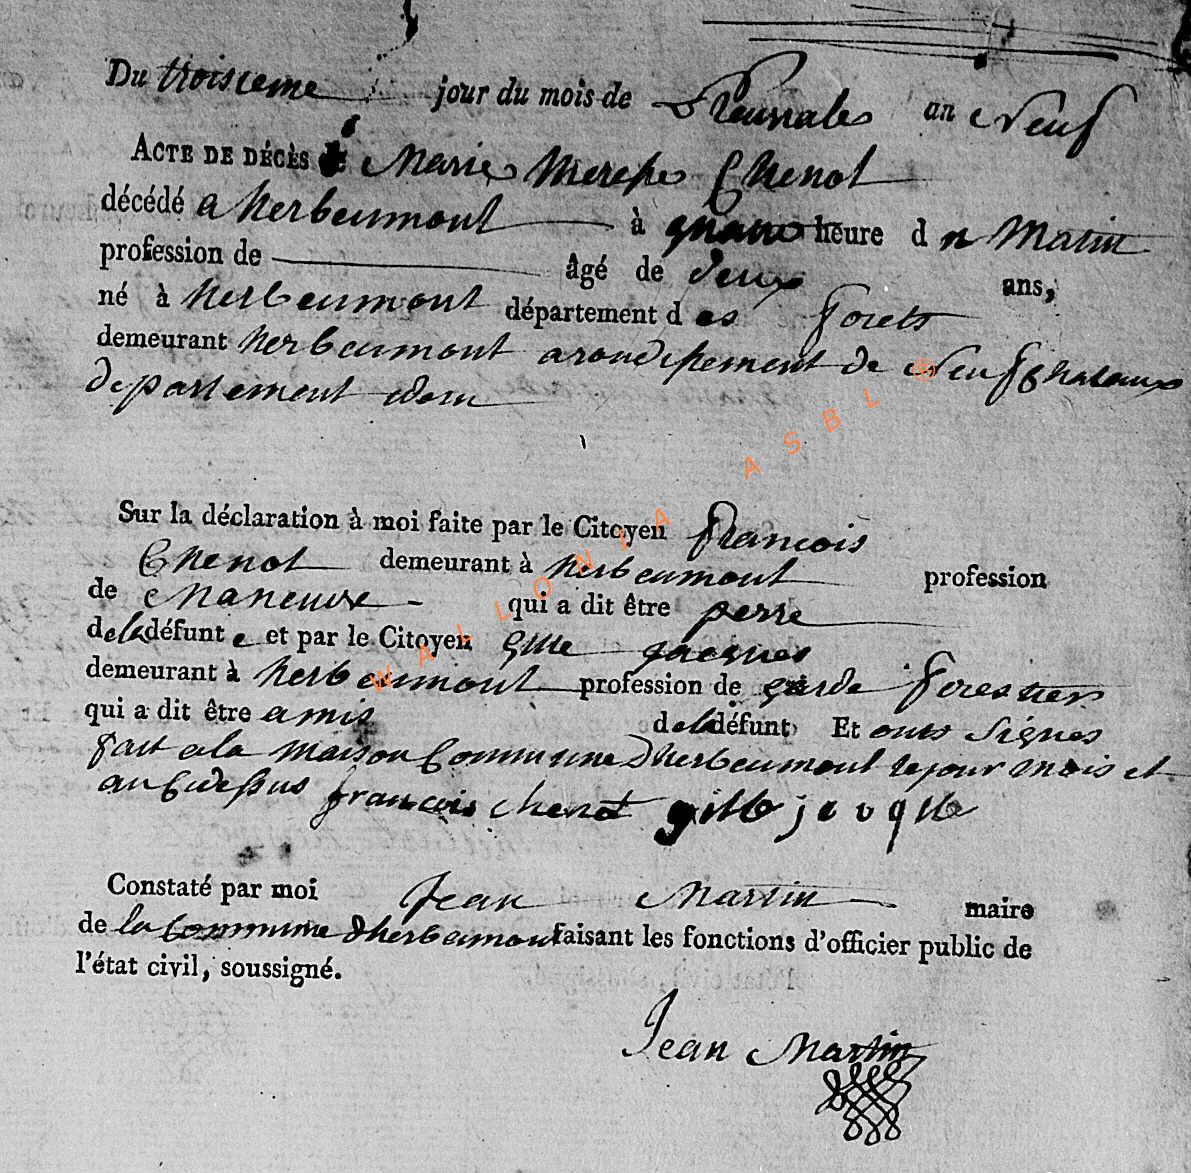 Du troisieme jour du mois de Preurial an neuf
ACTE DE DÉCÈS de Marie Therese Chenot
décédé a herbeumont à quatre heure du Matin
profession de âgé de deux ans,
né à herbeumont département des forets
demeurant herbeumont arondissement de Neufchateaux
departement idem
Sur la déclaration à moi faite par le Citoyen francois
Chenot demeurant à herbeumont profession
de Maneuvre qui a dit être perre
de la défunte et par le Citoyen Gille Jacques
demeurant à herbeumont profession de garde forestier
qui a dit être amis de la défunt Et onts Signes
fait a la maison Commune dherbeumont le jour mois et
an Cidessus francois chenot gille jouqle
Constaté par moi Jean Martin maire
de la Commune dherbeumont faisant les fonctions d'officier public de
l'état civil, soussigné.
Jean Martin
WALLONIA ASBL ®